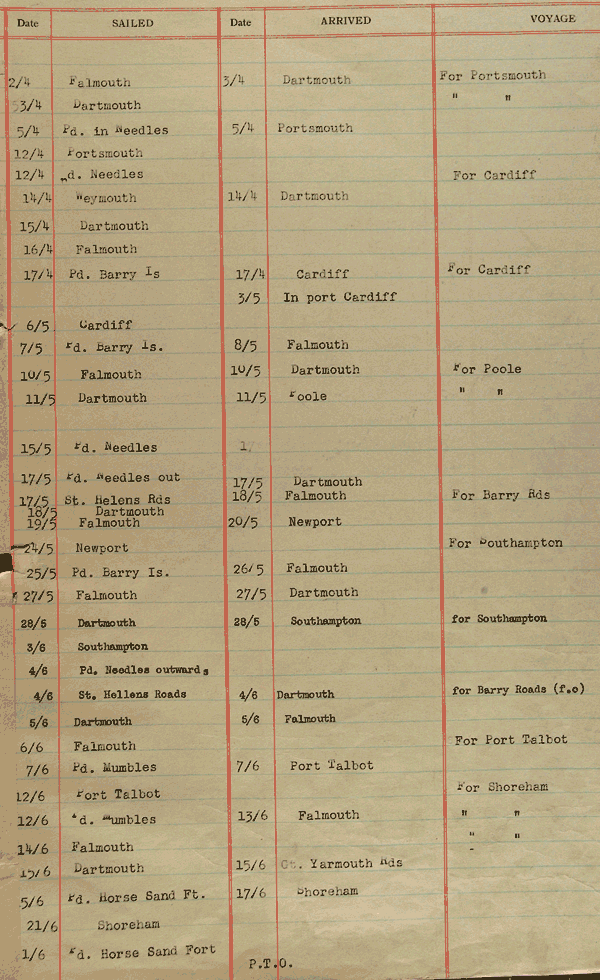 Date SAILED Date ARRIVED VOYAGE
2/4 Falmouth 3/4 Dartmouth For Portsmouth
3/4 Dartmouth " "
5/4 Pd. in Needles 5/4 Portsmouth
12/4 Portsmouth
12/4 Pd. Needles For Cardiff
14/4 Weymouth 14/4 Dartmouth
15/4 Dartmouth
16/4 Falmouth
17/4 Pd. Barry Is 17/4 Cardiff For Cardiff
3/5 In port Cardiff
6/5 Cardiff
7/5 Pd. Barry Is. 8/5 Falmouth
10/5 Falmouth 10/5 Dartmouth For Poole
11/5 Dartmouth 11/5 Poole " "
15/5 Pd. Needles 1
17/5 Pd. Needles out 17/5 Dartmouth
17/5 St. Helens Rds 18/5 Falmouth For Barry Rds
18/5 Dartmouth
19/5 Falmouth 20/5 Newport
24/5 Newport For Southampton
25/5 Pd. Barry Is. 26/5 Falmouth
27/5 Falmouth 27/5 Dartmouth
28/5 Dartmouth 28/5 Southampton for Southampton
3/6 Southampton
4/6 Pd. Needles outwards
4/6 St. Hellens Roads 4/6 Dartmouth for Barry Roads (f.o)
5/6 Dartmouth 5/6 Falmouth
6/6 Falmouth For Port Talbot
7/6 Pd. Mumbles 7/6 Port Talbot
12/6 Port Talbot For Shoreham
12/6 Pd. Mumbles 13/6 Falmouth " "
14/6 Falmouth " "
15/6 Dartmouth 15/6 Yarmouth Rds
5/6 Pd. Horse Sand Ft. 17/6 Shoreham
21/6 Shoreham
1/6 Pd. Horse Sand Fort
P.T.O.